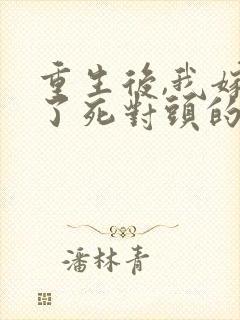 重生後,我嫁
了死對頭的
潘林青